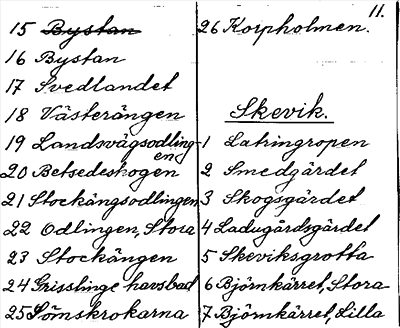 11.
15 Bystan
16 Bystan
17 Svedlandet
18 Västerängen
19 Landsvägsodling-
en
20 Betsedeskogen
21 Stockängsodlingen
22 Odlingen, Stora
23 Stockängen
24 Grisslinge havsbad
25 Tömskrokarna
26 Korpholmen.
Skevik.
1 Latringropen
2 Smedgärdet
3 Skogsgärdet
4 Ladugårdsgärdet
5 Skeviksgrotta
6 Björnkärret, Stora
7 Björnkärret, Lilla